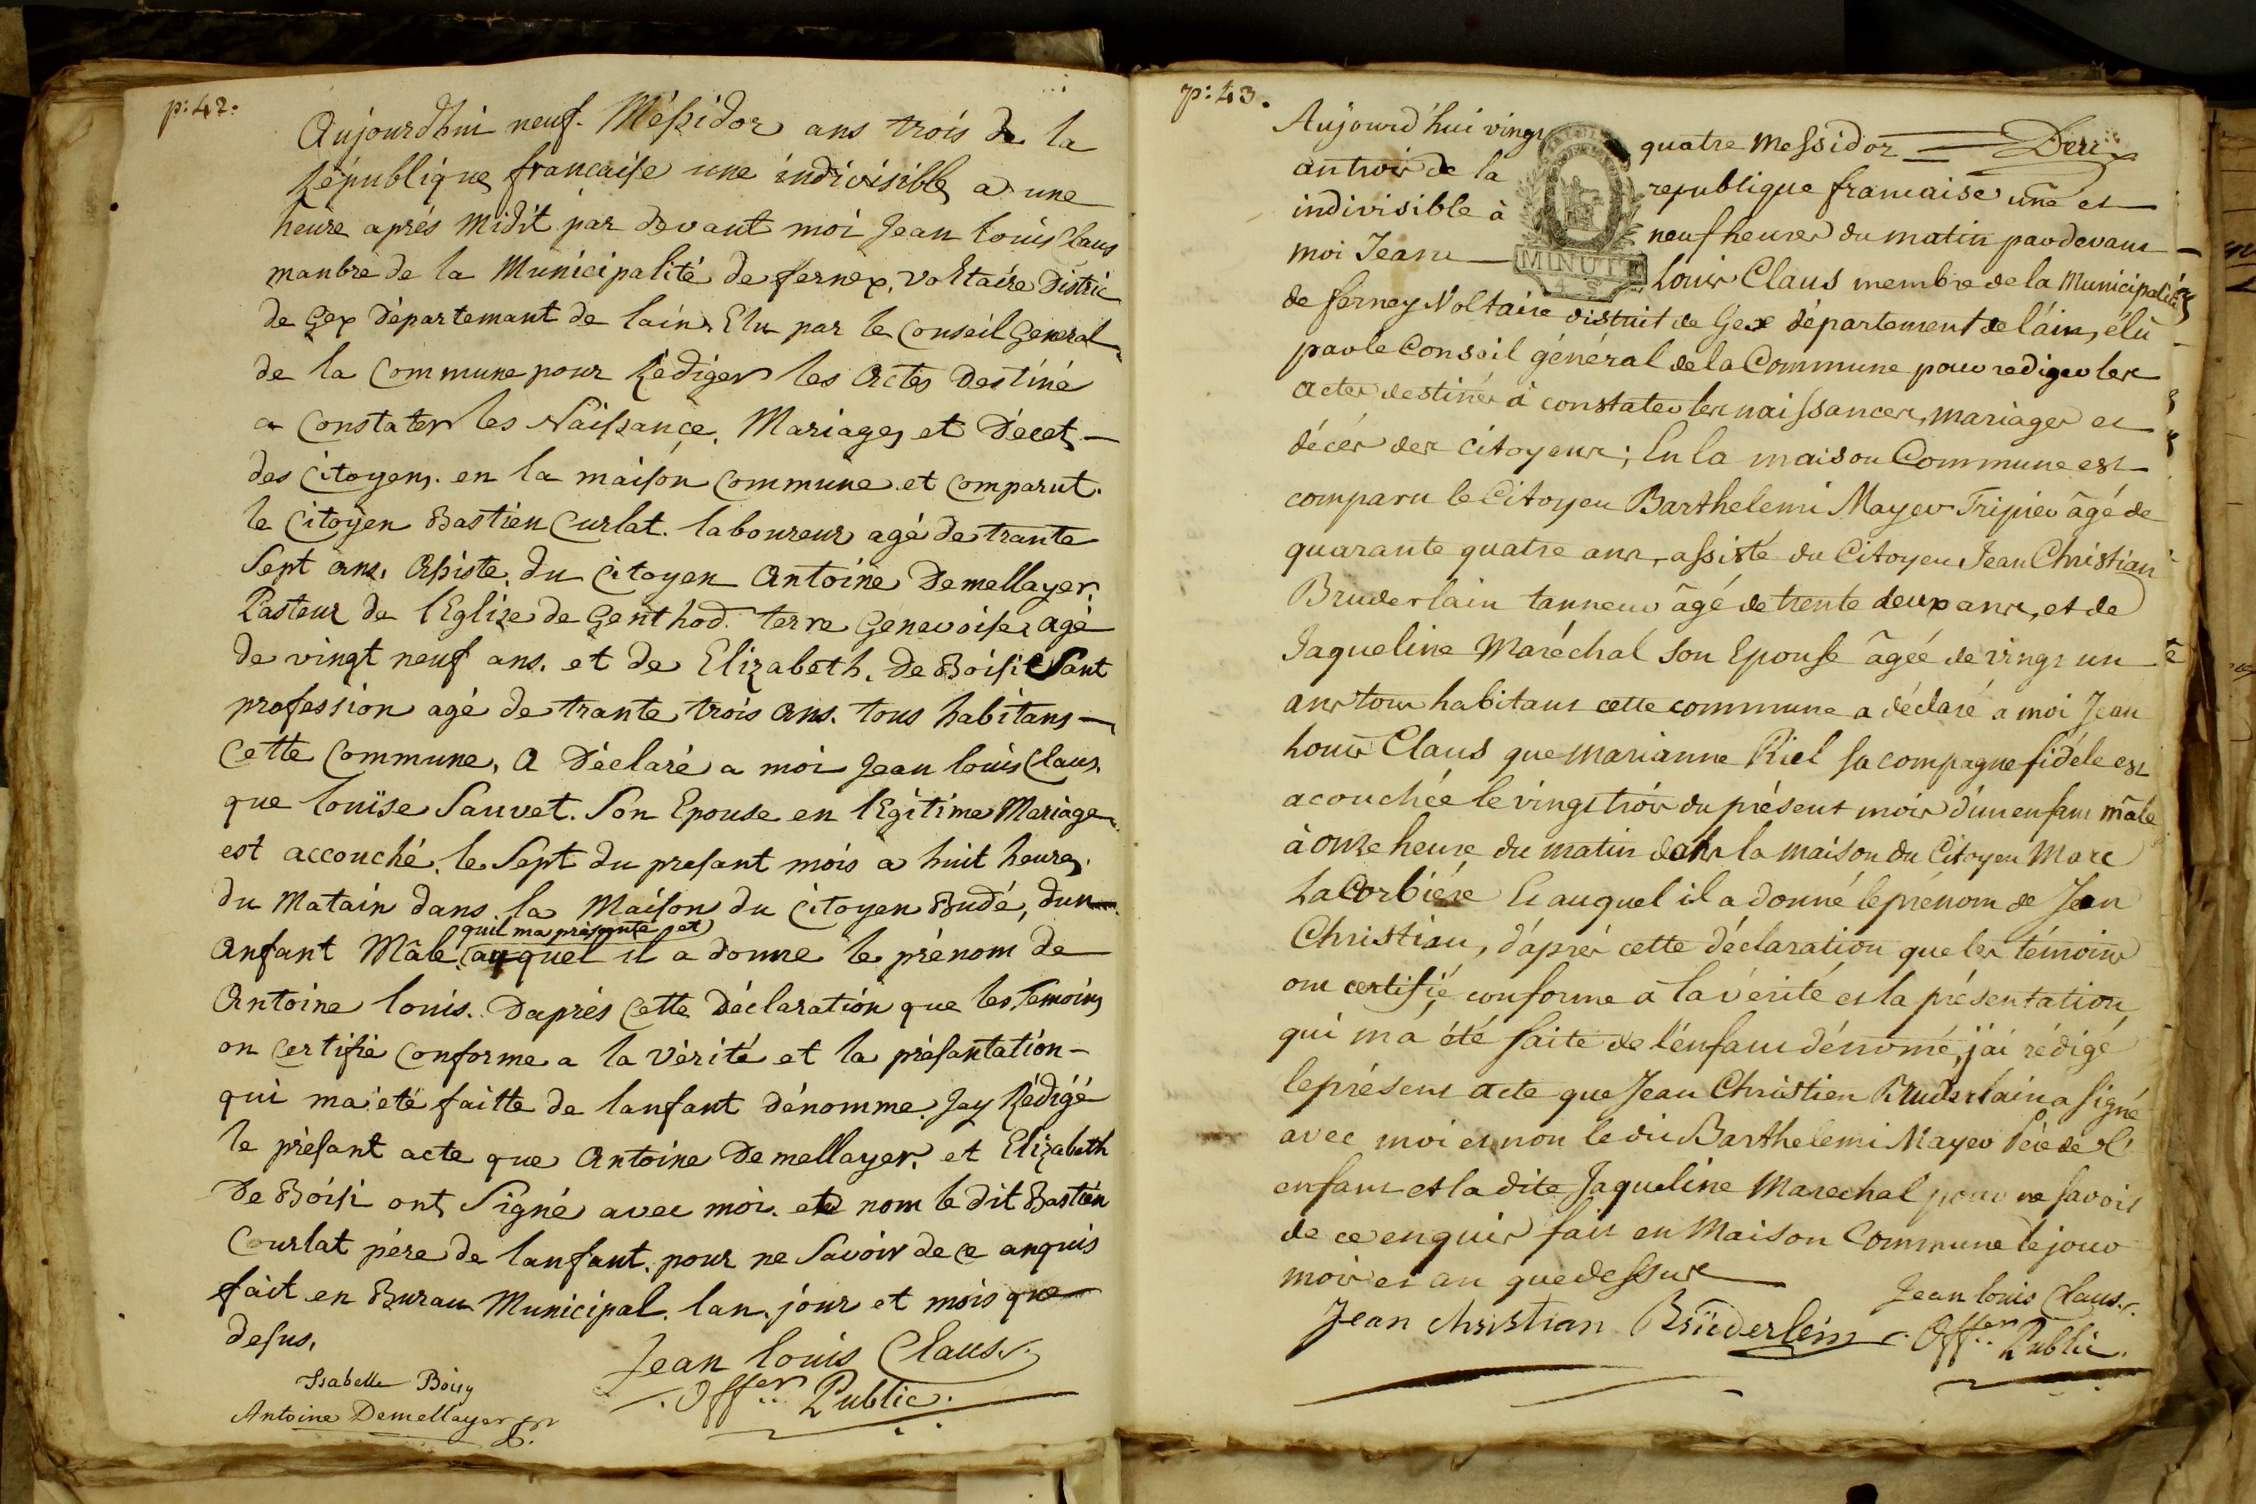 p: 42.
Aujourdhui neuf. Messidor ans trois de la
République francaise une indivisible a une
heure aprés Midit par devant moi Jean louis Claus
manbre de la Municipalité de fernex, voltaire Distric
de Gex Département de lain, Elu par le Conseil General
de la Commune pour Rédiger les Actes Destiné
a Constater les Naissance, Mariages et Décet
des Citoyens. en la maison Commune et Comparut.
le Citoyen Bastien Curlat. laboureur agé de trante
Sept ans, Assisté, du Citoyen Antoine Demellayer,
Pasteur de l'Eglise de Genthod. terre Genevoise agé
de vingt neuf ans. et de Elizabeth, De Boisi Sant
profession agé de trante trois ans. tous habitans
Cette Commune, A Déclaré a moi Jean louis Claus,
que louïse Sauvet. Son Epouse en lEgitime Mariage
est accouché, le Sept du present mois a huit heures.
du Matain dans la Maison du Citoyen Budé, dun
quil ma présenté et
Anfant Mâle, auquel il a donne le prénom de
Antoine louis. Daprés Cette Déclaration que les Temoins
on Certifié Conforme a la vérité et la présantation
qui ma été faitte de lanfant dénomme, Jay Rédigé
le présant acte que Antoine Demellayer, et Elizabeth
De Boisi ont Signé avec moi. et nom le dit Bastien
Courlat pére de lanfant. pour ne Savoir de ce anquis
fait en Burau Municipal. lan, jour et mois que
desus,
Jean louis Claus.
Offer. Public.
Isabelle Boisy
Antoine Demellayer
p: 43.
Aujourd'hui vingt quatre Messidor
an trois de la republique francaise une et
indivisible à neuf heures du matin pardevant
moi Jean Louis Claus membre de la Municipalité
MINUTE
de ferney Voltaire district de Gex département de l'ain, élu
par le Conseil général de la Commune pour rediger les
actes destinés à constater les naissances, mariages et
décés des Citoyens; En la maison Commune est
comparu le Citoyen Barthelemi Mayer Tripier âgé de
quarante quatre ans, assisté du Citoyen Jean Christian
Bruderlain tanneur âgé de trente deux ans, et de
Jaqueline Maréchal Son Epouse âgée de vingt un
ans tous habitans cette commune a déclaré a moi Jean
Louis Claus que marianne Riel Sa compagne fidéle est
acouchée le vingt trois du présent mois d'un enfant mâle
à onze heure du matin dans la maison du Citoyen Marc
La Corbiére Et auquel il a donné le prénom de Jean
Christian, d'aprés cette déclaration que les témoins
ont certifié conforme à la vérité et la présentation
qui m'a été faite de l'enfant dénomé, j'ai rédigé
le présent acte que Jean Christien Bruderlain a signé
avec moi et non le dit Barthelemi Mayer Pere de l'
enfant et la dite Jaqueline Marechal pour ne savoir
de ce enquis fait en Maison Commune le jour
mois et an que dessus
Jean louis Claus.
Jean christian Brüderlein
Offer. Public.